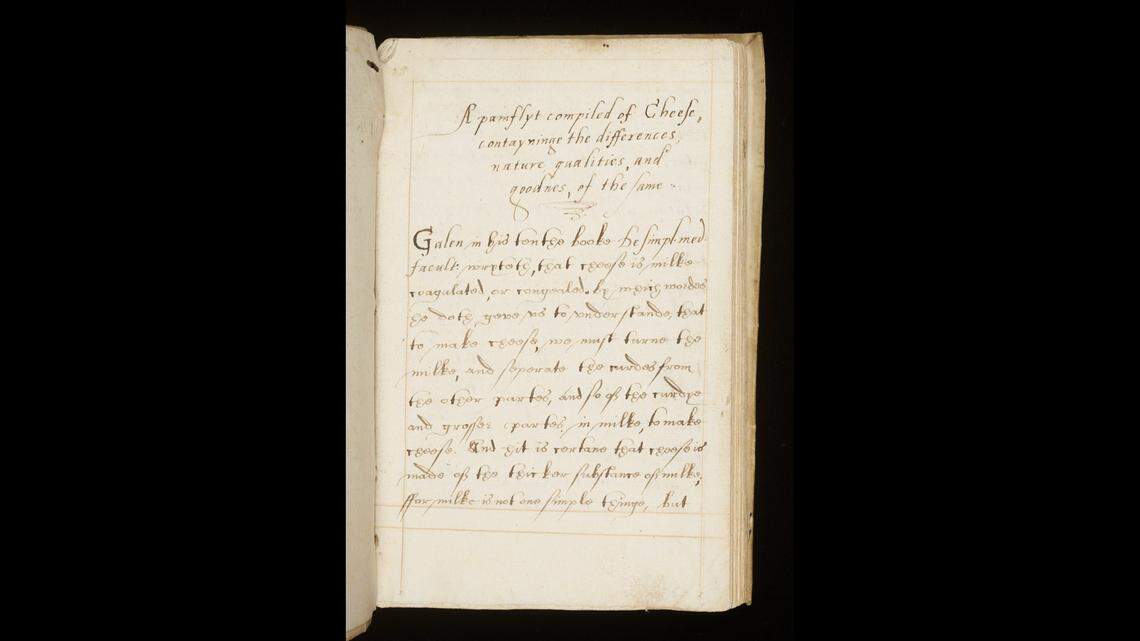 A pamflyt compiled of Cheese,
contayninge the differences,
nature, qualities, and
goodnes, of the same
Galen in his tenthe booke de simpl: med:
facult: wryteth, that cheese is milke
coagulated, or congealed. by which wordes
he doth geve vs to vnderstande, that
to make cheese, we must turne the
milke, and seperate the curdes from
the other partes, and so of the curdye
and grosser partes, in milke, to make
cheese. And hit is certane that cheese is
made of the thicker substance of milke,
ffor milke is not one simple thinge, but